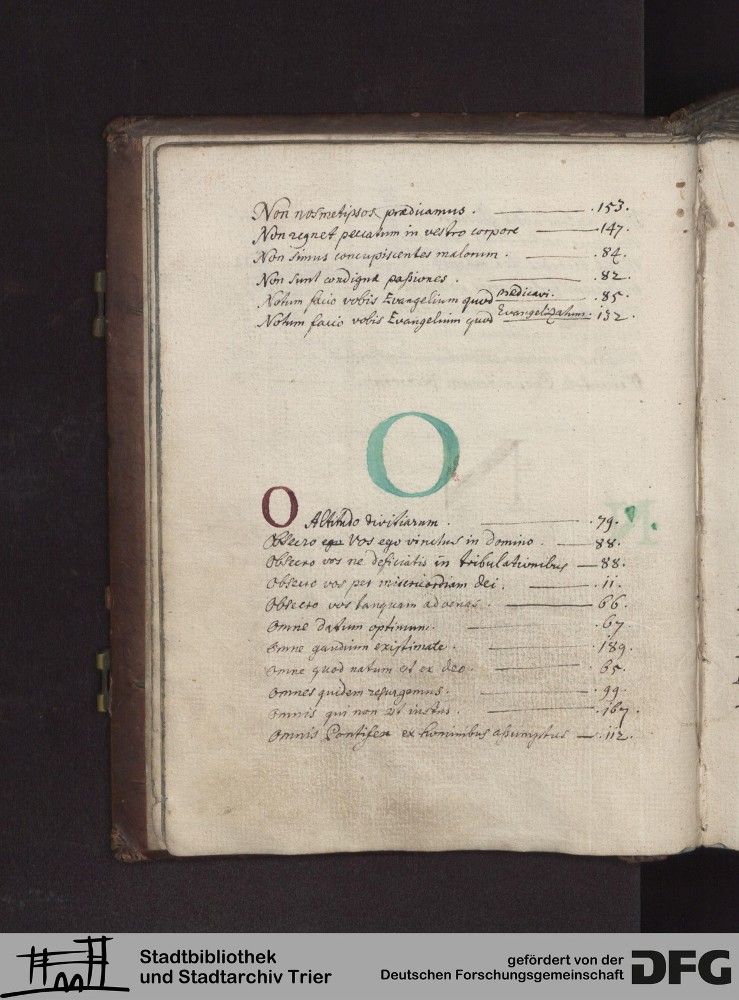 Non nosmetipsos prædicamus. 153.
Non regnet peccatum in vestro corpore 147.
Non simus concupiscentes malorum. 84.
Non sunt condignæ paßiones. 82.
Notum facio vobis Evangelium quod prædicavi. 85.
Notum facio vobis Evangelium quod Evangelizatum. 132.
O
O Altitudo divitiarum. 79.
Obsecro vos ego vinctus in domino. 88.
Obsecro vos ne deficiatis in tribulationibus 88.
Obsecro vos per misericordiam dei. 11.
Obsecro vos tanquam advenas. 66.
Omne datum optimum. 67.
Omne gaudium existimate. 189.
Omne quod natum est ex deo. 65.
Omnes quidem resurgemus. 99.
Omnis qui non est iustus. 167.
Omnis Pontifex ex hominibus aßumptus 112.
Stadtbibliothek
und Stadtarchiv Trier
gefördert von der
Deutschen Forschungsgemeinschaft
DFG